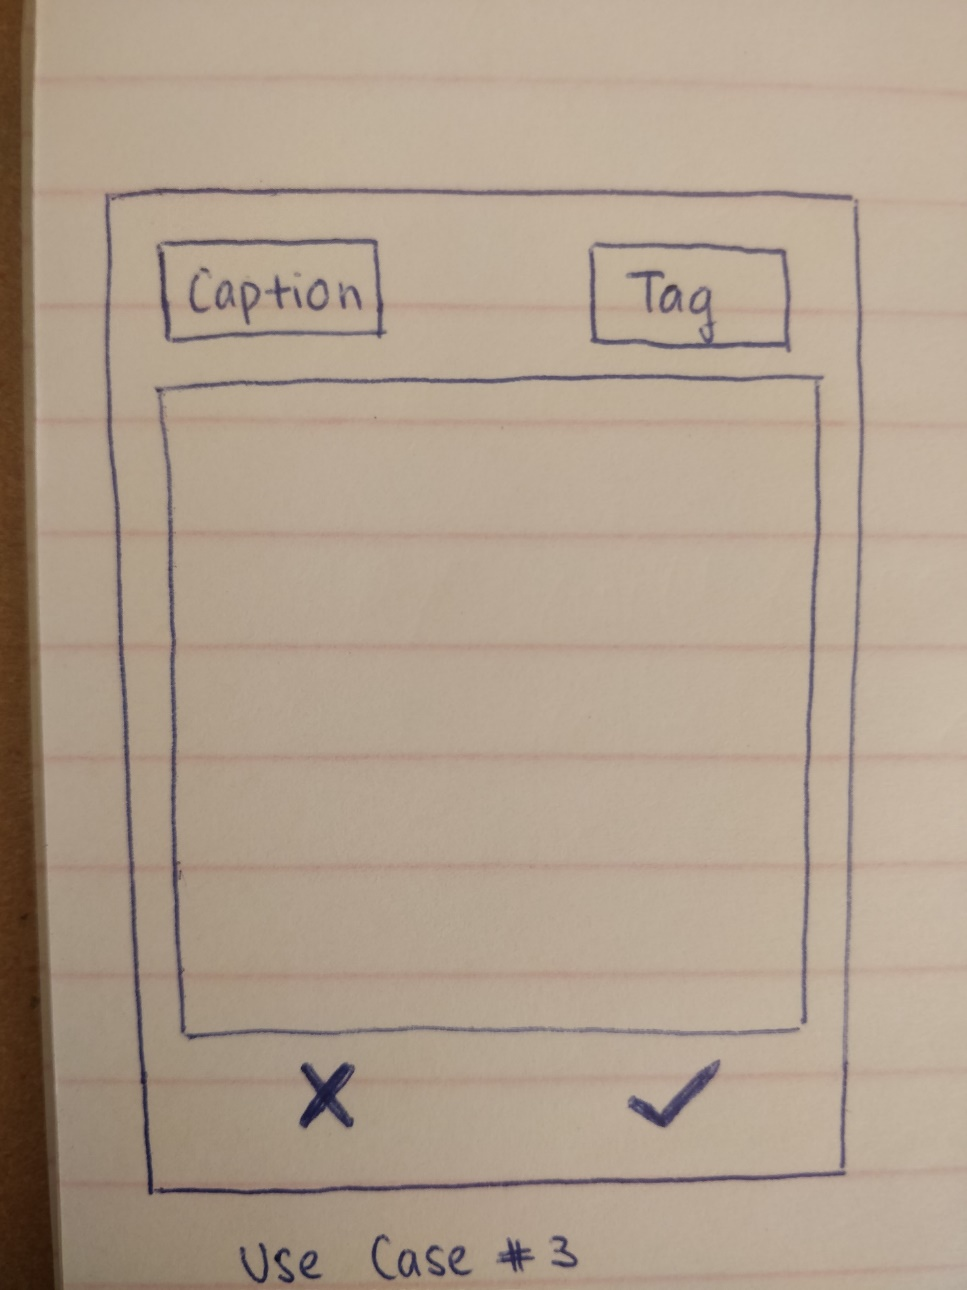 Caption
Tag
Use Case #3